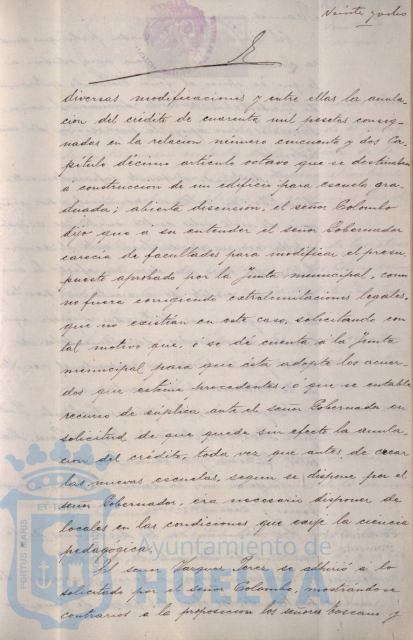 Veinte y ocho
diversas modificaciones y entre ellas la anula-
cion del crédito de cuarenta mil pesetas consig-
nadas en la relacion número cincuenta y dos Ca-
pítulo décimo artículo octavo que se destinaban
á construccion de un edificio para escuela gra-
duada; abierta discusion, el señor Colombo
dijo que á su entender el señor Gobernador
carecia de facultades para modificar el presu-
puesto aprobado por la Junta municipal, como
no fuera corrigiendo extralimitaciones legales,
que no existian en este caso, solicitando con
tal motivo que, ó se dé cuenta á la Junta
municipal para que ésta adopte los acuer-
dos que estime procedentes, ó que se entable
recurso de súplica ante el señor Gobernador en
solicitud de que quede sin efecto la anula-
cion del crédito, toda vez que antes de crear
las nuevas escuelas, segun se dispone por el
señor Gobernador, era necesario disponer de
locales en las condiciones que exije la ciencia
pedagógica.
El señor Vazquez Perez se adhirió á lo
solicitado por el señor Colombo, mostrándose
contrarios á la proposicion los señores Toscano y
PORTUS MARIS
Ayuntamiento de
HUELVA